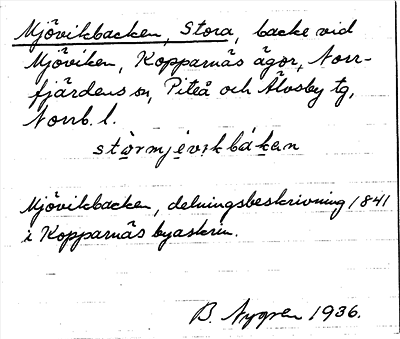 Mjövikbacken, Stora, backe vid
Mjöviken, Kopparnäs ägor, Norr-
fjärdens sn, Piteå och Älvsby tg,
Norrb. l.
stòrmjèvikbáken
Mjövikbacken, delningsbeskrivning 1841
i Kopparnäs byaskrin.
B. Nygren 1936.